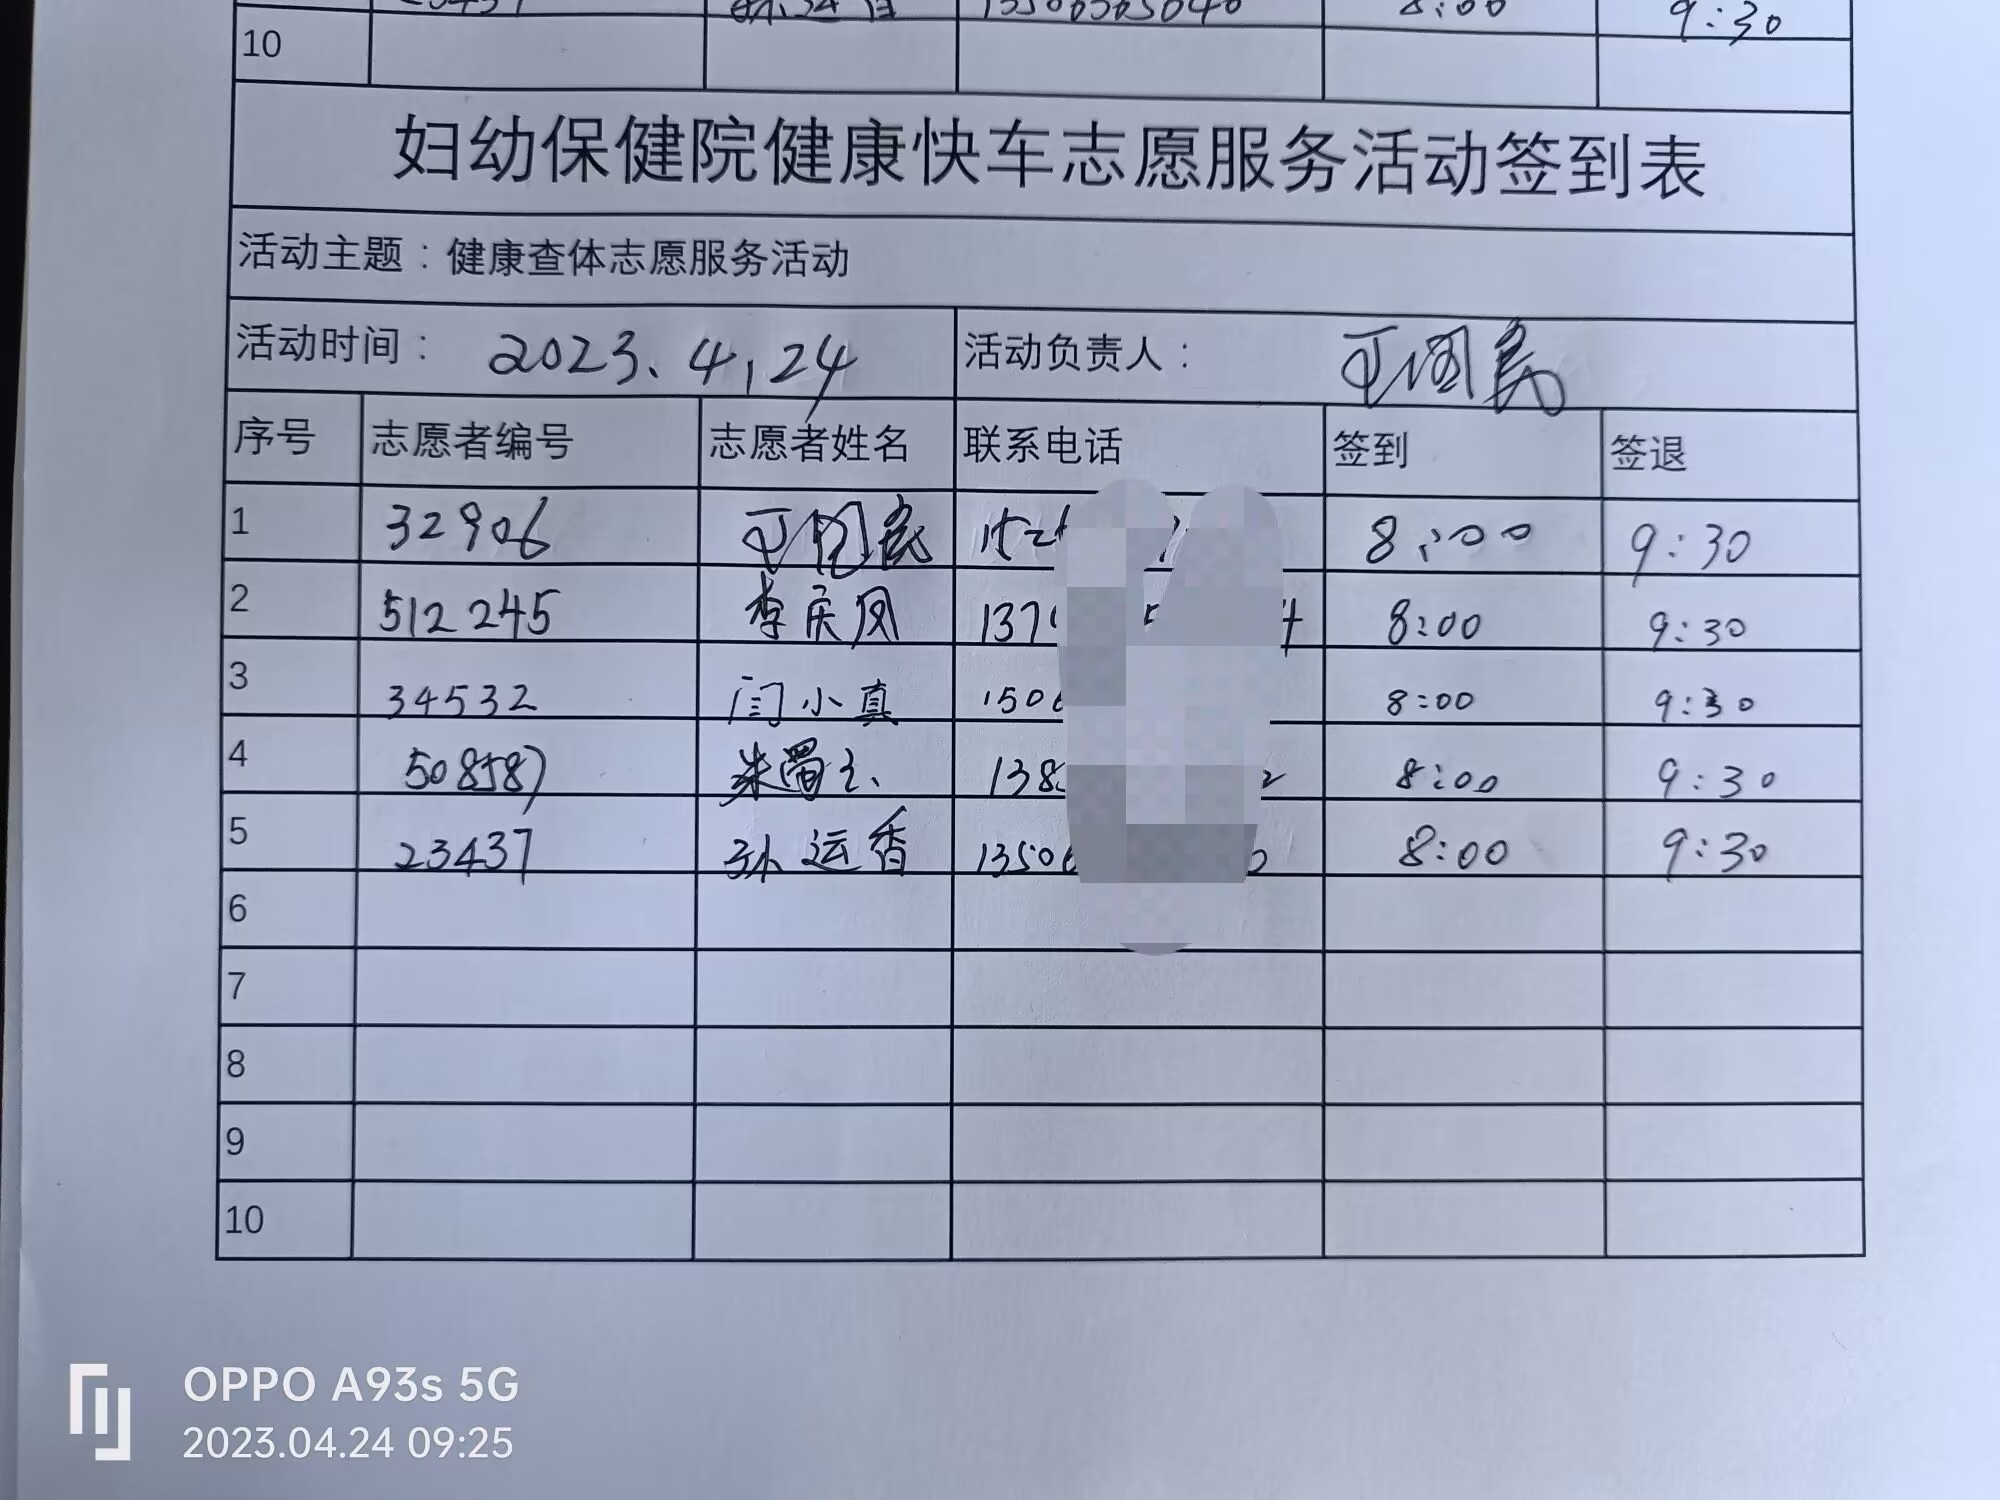 9:30
10
妇幼保健院健康快车志愿服务活动签到表
活动主题：健康查体志愿服务活动
活动时间： 2023.4.24 活动负责人：
序号 志愿者编号 志愿者姓名 联系电话 签到 签退
1 32906 8:00 9:30
2 512245 李庆凤 137 8:00 9:30
3 34532 闫小真 150 8:00 9:30
4 508587 朱 138 8:00 9:30
5 23437 孙运香 1350 8:00 9:30
6
7
8
9
10
OPPO A93s 5G
2023.04.24 09:25